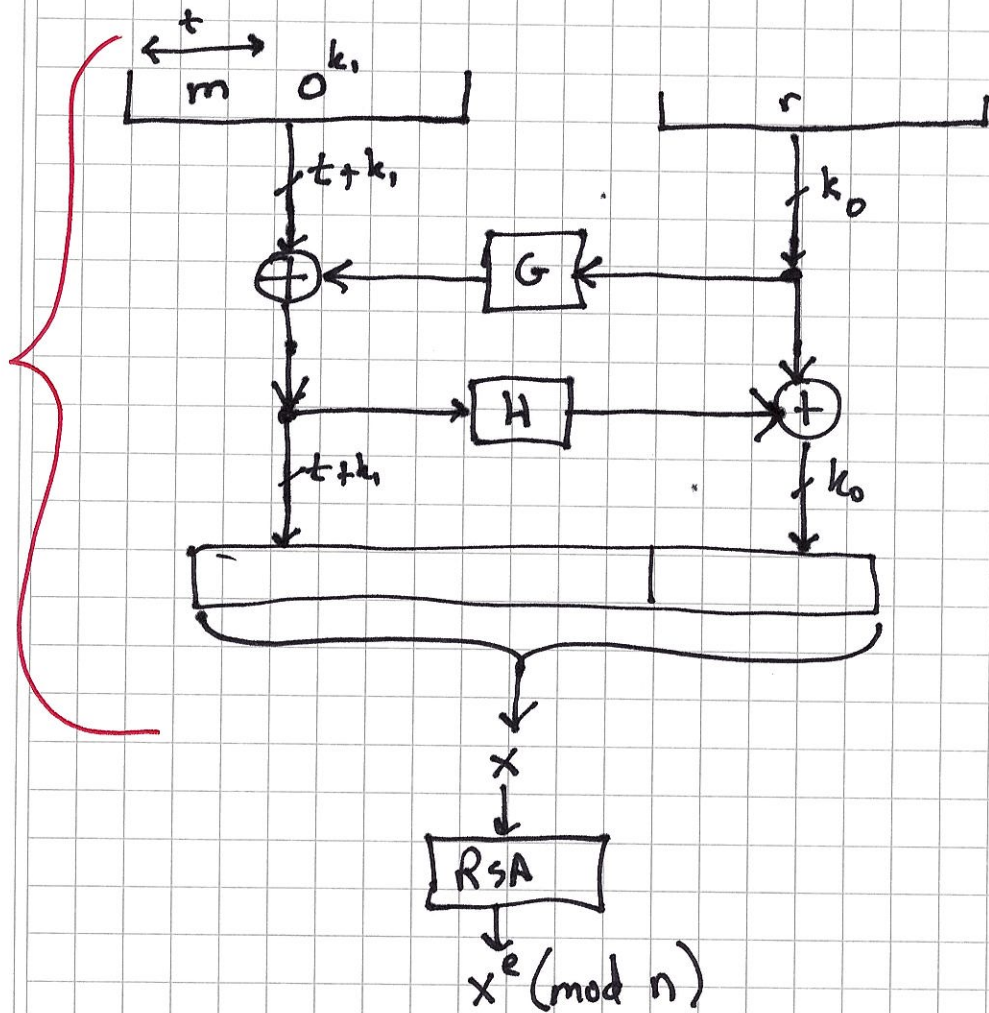 t
m 0^k₁
r
t+k₁
k₀
⊕
G
H
+
t+k₁
k₀
x
RSA
x^e (mod n)